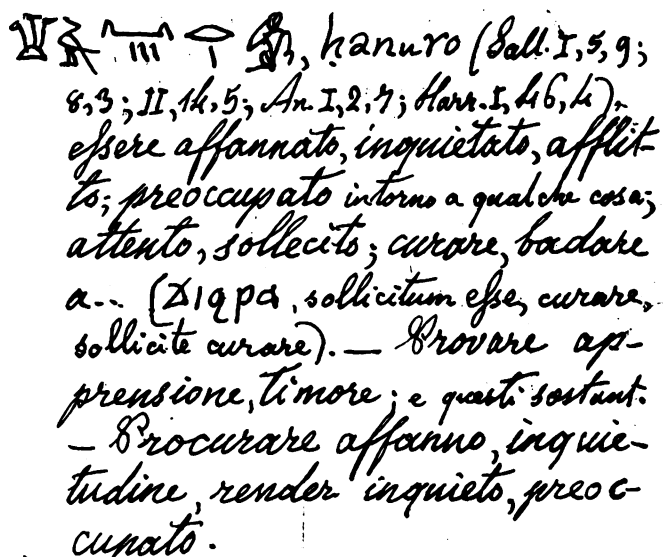 ḥanuro (Sall. I, 5, 9;
8, 3; II, 14, 5; An. I, 2, 7; Harr. I, 46, 4).
essere affannato, inquietato, afflit-
to; preoccupato intorno a qualche cosa;
attento, sollecito; curare, badare
a.. (ϫⲓϥⲣⲁ, sollicitum esse, curare,
sollicite curare). — Provare ap-
prensione, timore; e questi sostant.
— Procurare affanno, inquie-
tudine, render inquieto, preoc-
cupato.